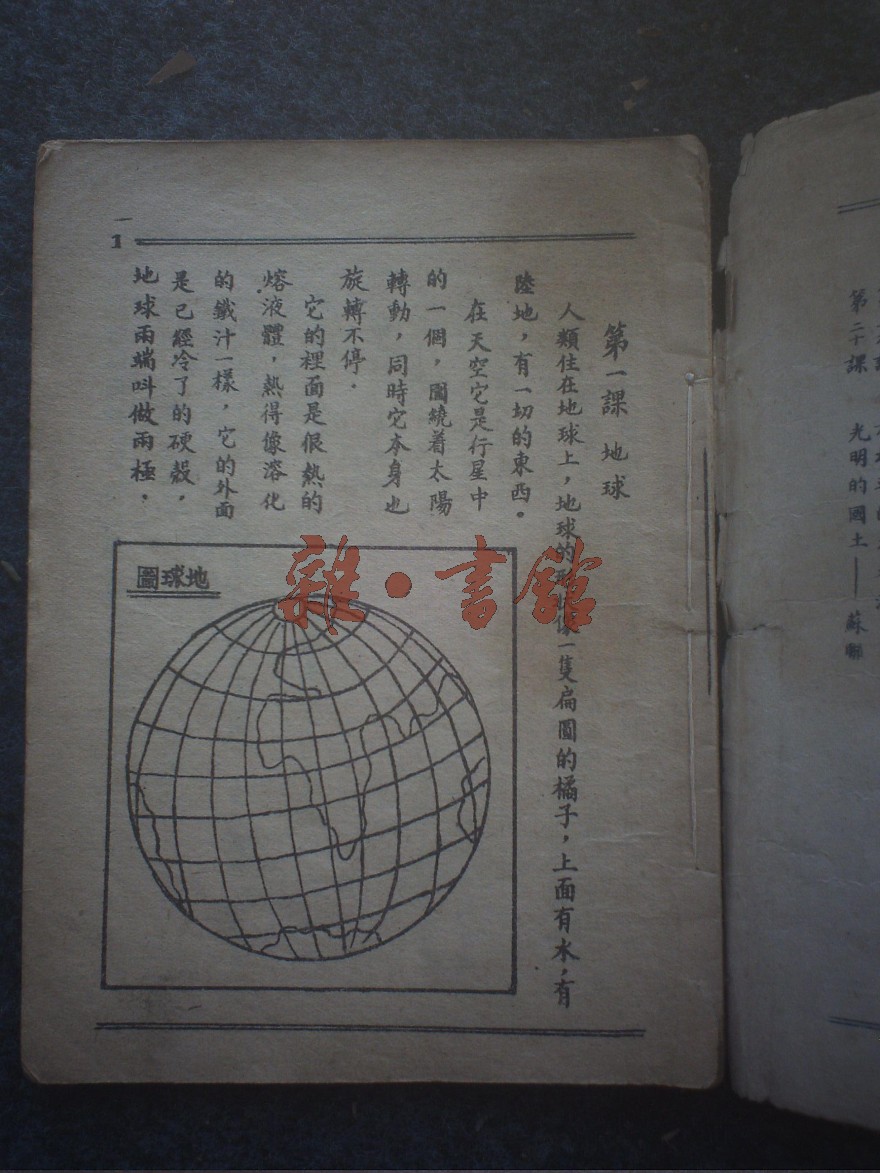 第二十課　光明的國土——蘇聯
第一課　地球
人類住在地球上，地球的形像一隻扁圓的橘子，上面有水，有
陸地，有一切的東西。
在天空它是行星中
的一個，圍繞着太陽
轉動，同時它本身也
旋轉不停．
它的裡面是很熱的
熔液體，熱得像溶化
的鐵汁一樣，它的外面
是已經冷了的硬殼，
地球兩端叫做兩極．
地球圖
1
雜·書館